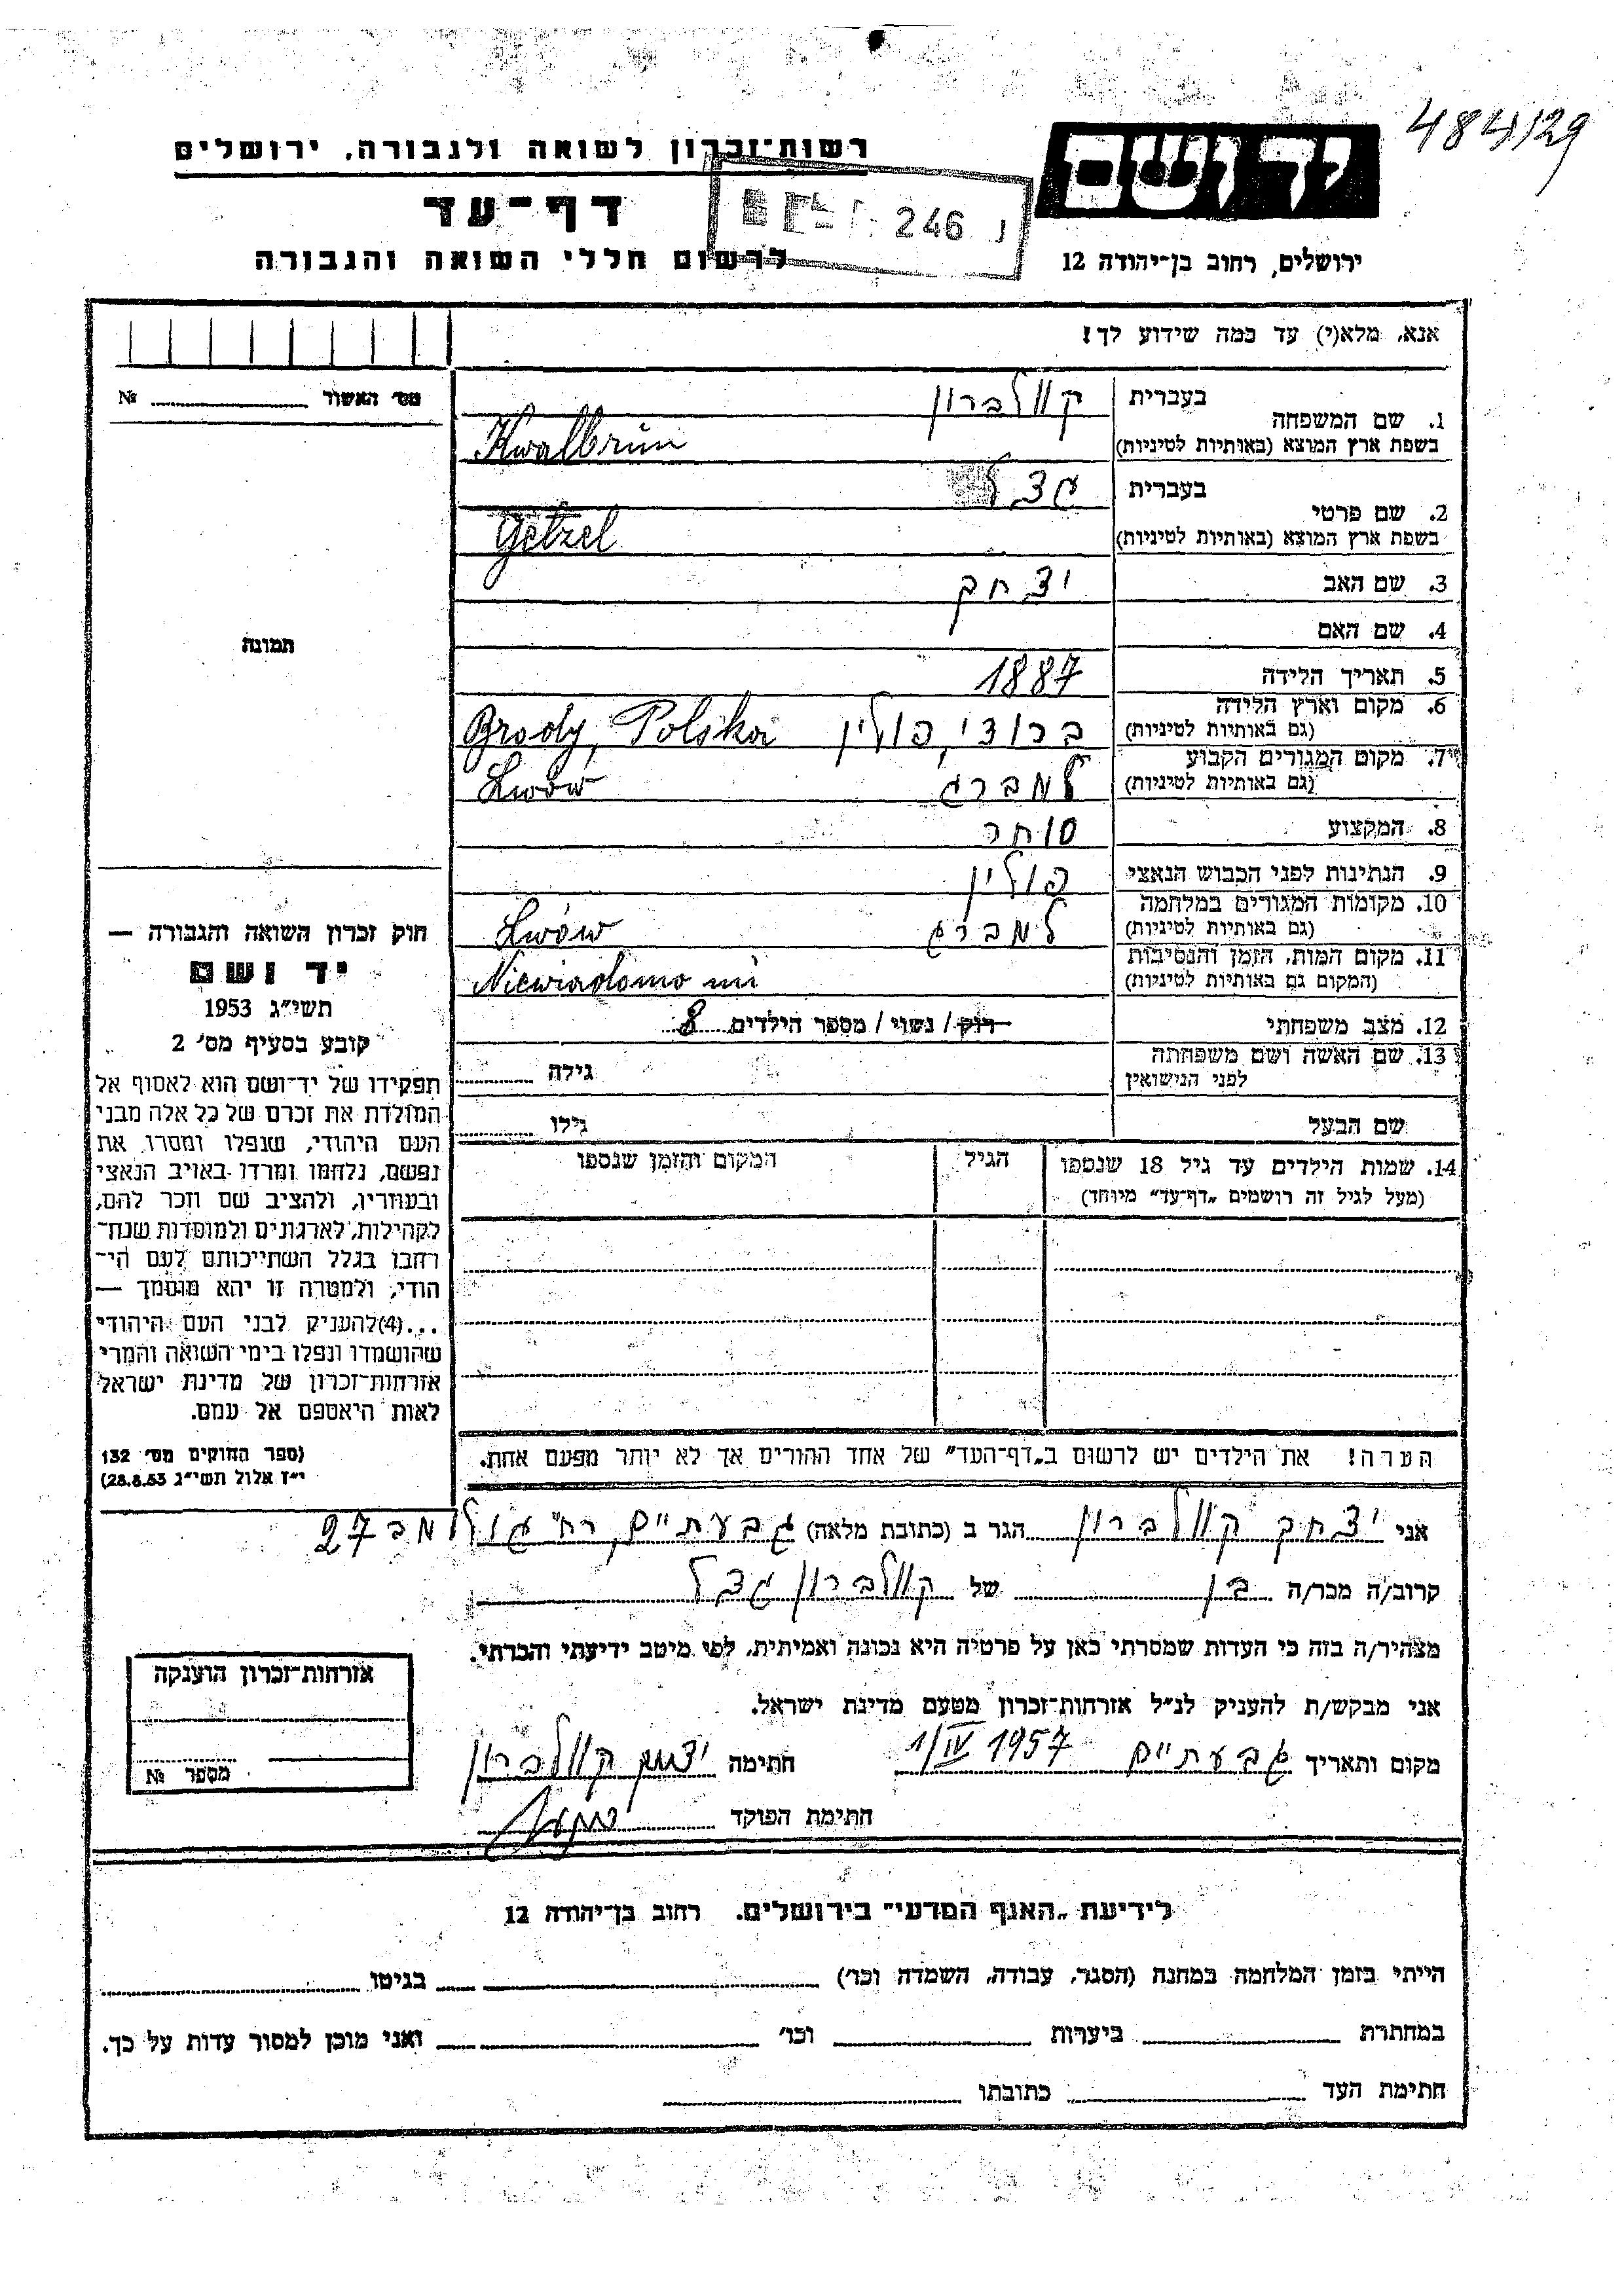 484/29
רשות־זכרון לשואה ולגבורה, ירושלים
יד ושם
דף־עד
246
לרשום חללי השואה והגבורה
ירושלים, רחוב בן־יהודה 12
אנא, מלא(י) עד כמה שידוע לך!
מס׳ האשור № 
1. שם המשפחה
בעברית קוולברון
בשפת ארץ המוצא (באותיות לטיניות) Kwalbrün
2. שם פרטי
בעברית געצל
בשפת ארץ המוצא (באותיות לטיניות) Getzel
3. שם האב יצחק
4. שם האם
5. תאריך הלידה 1887
6. מקום וארץ הלידה
(גם באותיות לטיניות) ברודי, פולין Brody, Polska
7. מקום המגורים הקבוע
(גם באותיות לטיניות) למברג Lwów
8. המקצוע סוחר
9. הנתינות לפני הכבוש הנאצי פולין
10. מקומות המגורים במלחמה
(גם באותיות לטיניות) למברג Lwów
11. מקום המות, הזמן והנסיבות
(המקום גם באותיות לטיניות) Niewiadomo mi
12. מצב משפחתי רוק / נשוי / מספר הילדים 8
13. שם האשה ושם משפחתה
לפני הנישואין גילה
שם הבעל גילו
14. שמות הילדים עד גיל 18 שנספו הגיל המקום והזמן שנספו
(מעל לגיל זה רושמים „דף־עד" מיוחד)
הערה! את הילדים יש לרשום ב„דף־העד" של אחד ההורים אך לא יותר מפעם אחת.
תמונה
חוק זכרון השואה והגבורה —
יד ושם
תשי״ג 1953
קובע בסעיף מס׳ 2
תפקידו של יד־ושם הוא לאסוף אל
המולדת את זכרם של כל אלה מבני
העם היהודי, שנפלו ומסרו את
נפשם, נלחמו ומרדו באויב הנאצי
ובעוזריו, ולהציב שם וזכר להם,
לקהילות, לארגונים ולמוסדות שנח־
רבו בגלל השתייכותם לעם הי־
הודי, ולמטרה זו יהא מוסמך —
...(4)להעניק לבני העם היהודי
שהושמדו ונפלו בימי השואה והמרי
אזרחות־זכרון של מדינת ישראל
לאות היאספם אל עמם.
(ספר החוקים מס׳ 132
י״ז אלול תשי״ג 28.8.53)
אני יצחק קוולברון הגר ב (כתובת מלאה) גבעתיים, רח׳ גולומב 27
קרוב/ה מכר/ה בן של קוולברון געצל
מצהיר/ה בזה כי העדות שמסרתי כאן על פרטיה היא נכונה ואמיתית, לפי מיטב ידיעתי והכרתי.
אני מבקש/ת להעניק לנ״ל אזרחות־זכרון מטעם מדינת ישראל.
מקום ותאריך גבעתיים 1/IV 1957 חתימה יצחק קוולברון
חתימת הפוקד
אזרחות־זכרון הוענקה
מספר №
לידיעת „האגף המדעי" בירושלים, רחוב בן־יהודה 12
הייתי בזמן המלחמה במחנה (הסגר, עבודה, השמדה וכו׳) בגיטו
במחתרת ביערות וכו׳ ואני מוכן למסור עדות על כך.
חתימת העד כתובתו